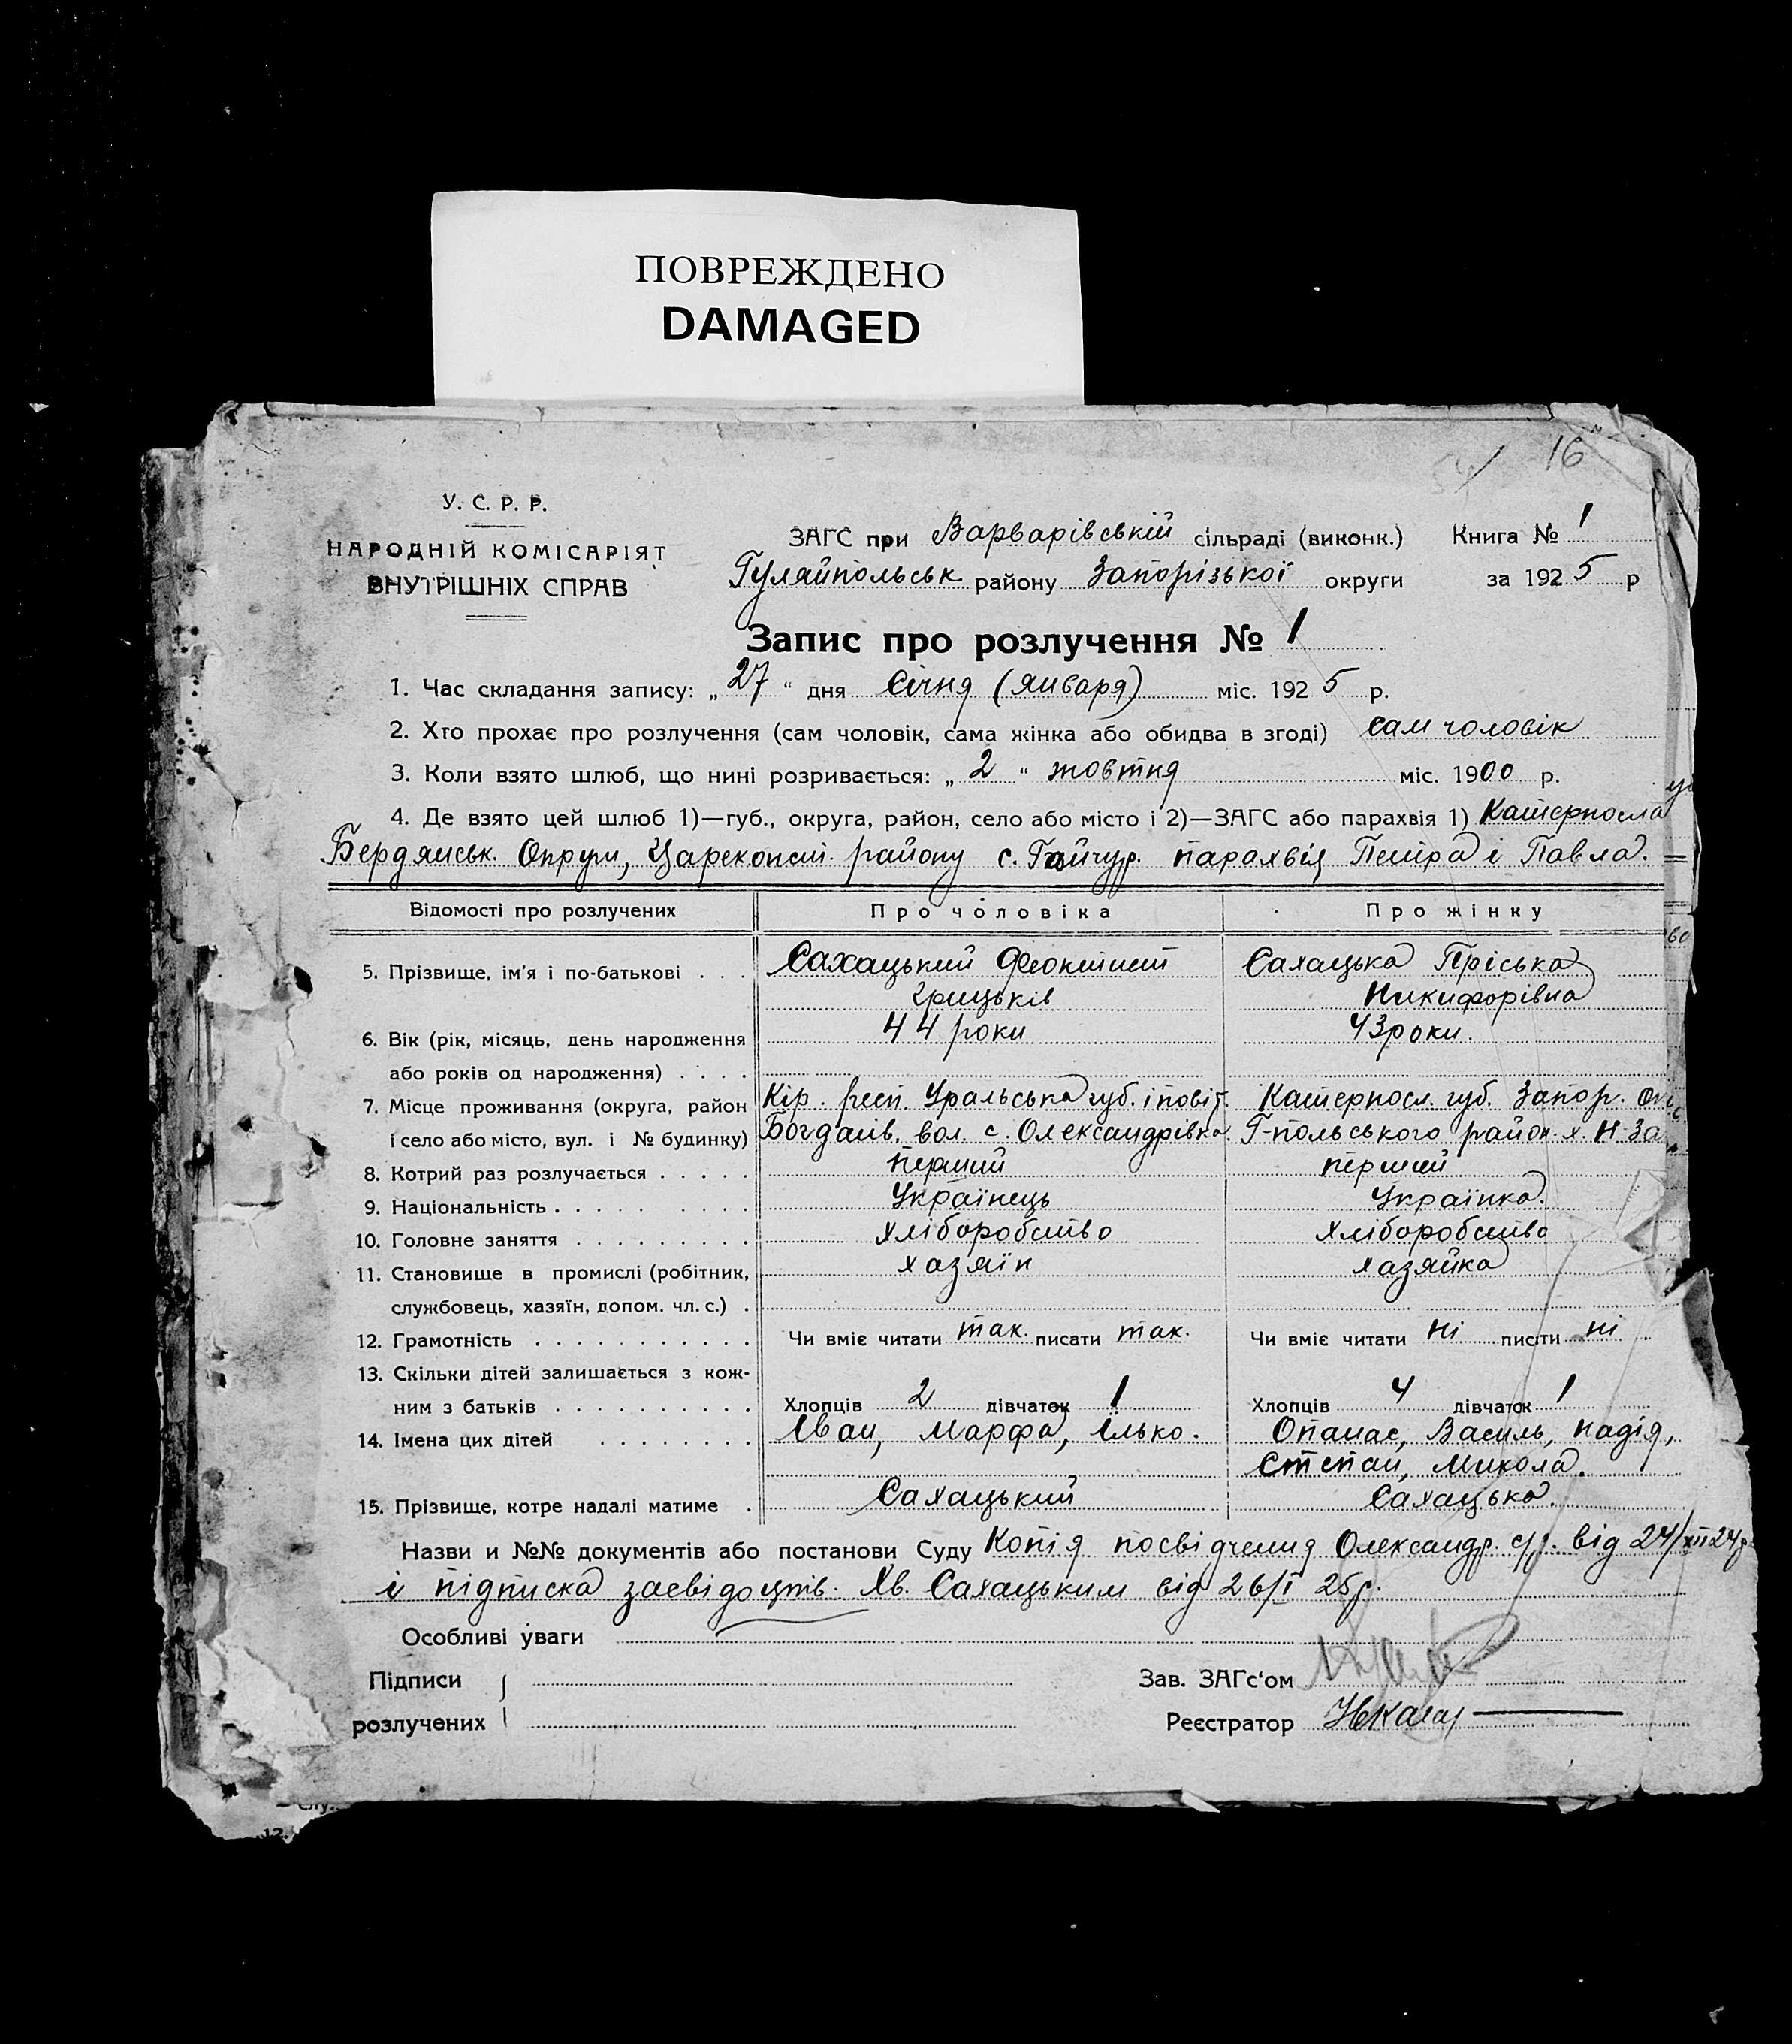 ПОВРЕЖДЕНО
DAMAGED
16
У. С. Р. Р.
НАРОДНІЙ КОМІСАРІЯТ
ВНУТРІШНІХ СПРАВ
ЗАГС при Варварівській сільраді (виконк.) Книга № 1
Гуляйпольськ району Запорізької округи за 1925 р
Запис про розлучення № 1
1. Час складання запису: „27“ дня Січня (Января) міс. 1925 р.
2. Хто прохає про розлучення (сам чоловік, сама жінка або обидва в згоді) сам чоловік
3. Коли взято шлюб, що нині розривається: „2“ жовтня міс. 1900 р.
4. Де взято цей шлюб 1)—губ., округа, район, село або місто і 2)—ЗАГС або парахвія 1) Катерносла
Бердянськ. Округи, Царекопст. району с. Гайчур. парахвія Петра і Павла.
Відомості про розлучених Про чоловіка Про жінку
5. Прізвище, ім'я і по-батькові . . . Сахацький Феоктист Сахацька Пріська
Грицьків Никифорівна
6. Вік (рік, місяць, день народження 44 роки 43 роки.
або років од народження) . . . .
7. Місце проживання (округа, район Кір. респ. Уральська губ. і повіт. Катерносл. губ. Запор. Ок
і село або місто, вул. і № будинку) Богданів. вол. с. Олександрівка Г-польського район. х. Н-За
8. Котрий раз розлучається . . . . . перший перший
9. Національність . . . . . . . . . Українець Українка.
10. Головне заняття . . . . . . . . . хліборобство хліборобство
11. Становище в промислі (робітник, хазяїн хазяйка
службовець, хазяїн, допом. чл. с.) .
12. Грамотність . . . . . . . . . . . Чи вміє читати так. писати так. Чи вміє читати ні писати ні
13. Скільки дітей залишається з кож-
ним з батьків . . . . . . . . . . Хлопців 2 дівчаток 1 Хлопців 4 дівчаток 1
14. Імена цих дітей . . . . . . . . Іван, Марфа, Ілько. Опанас, Василь, Надія,
Степан, Микола.
15. Прізвище, котре надалі матиме . Сахацький Сахацька.
Назви и №№ документів або постанови Суду Копія посвідчення Олександр. с/р. від 24/XII 24р
і підписка засвідоцтв. Хв. Сахацьким від 26/I 25р.
Особливі уваги
Підписи
розлучених
Зав. ЗАГс'ом
Реєстратор